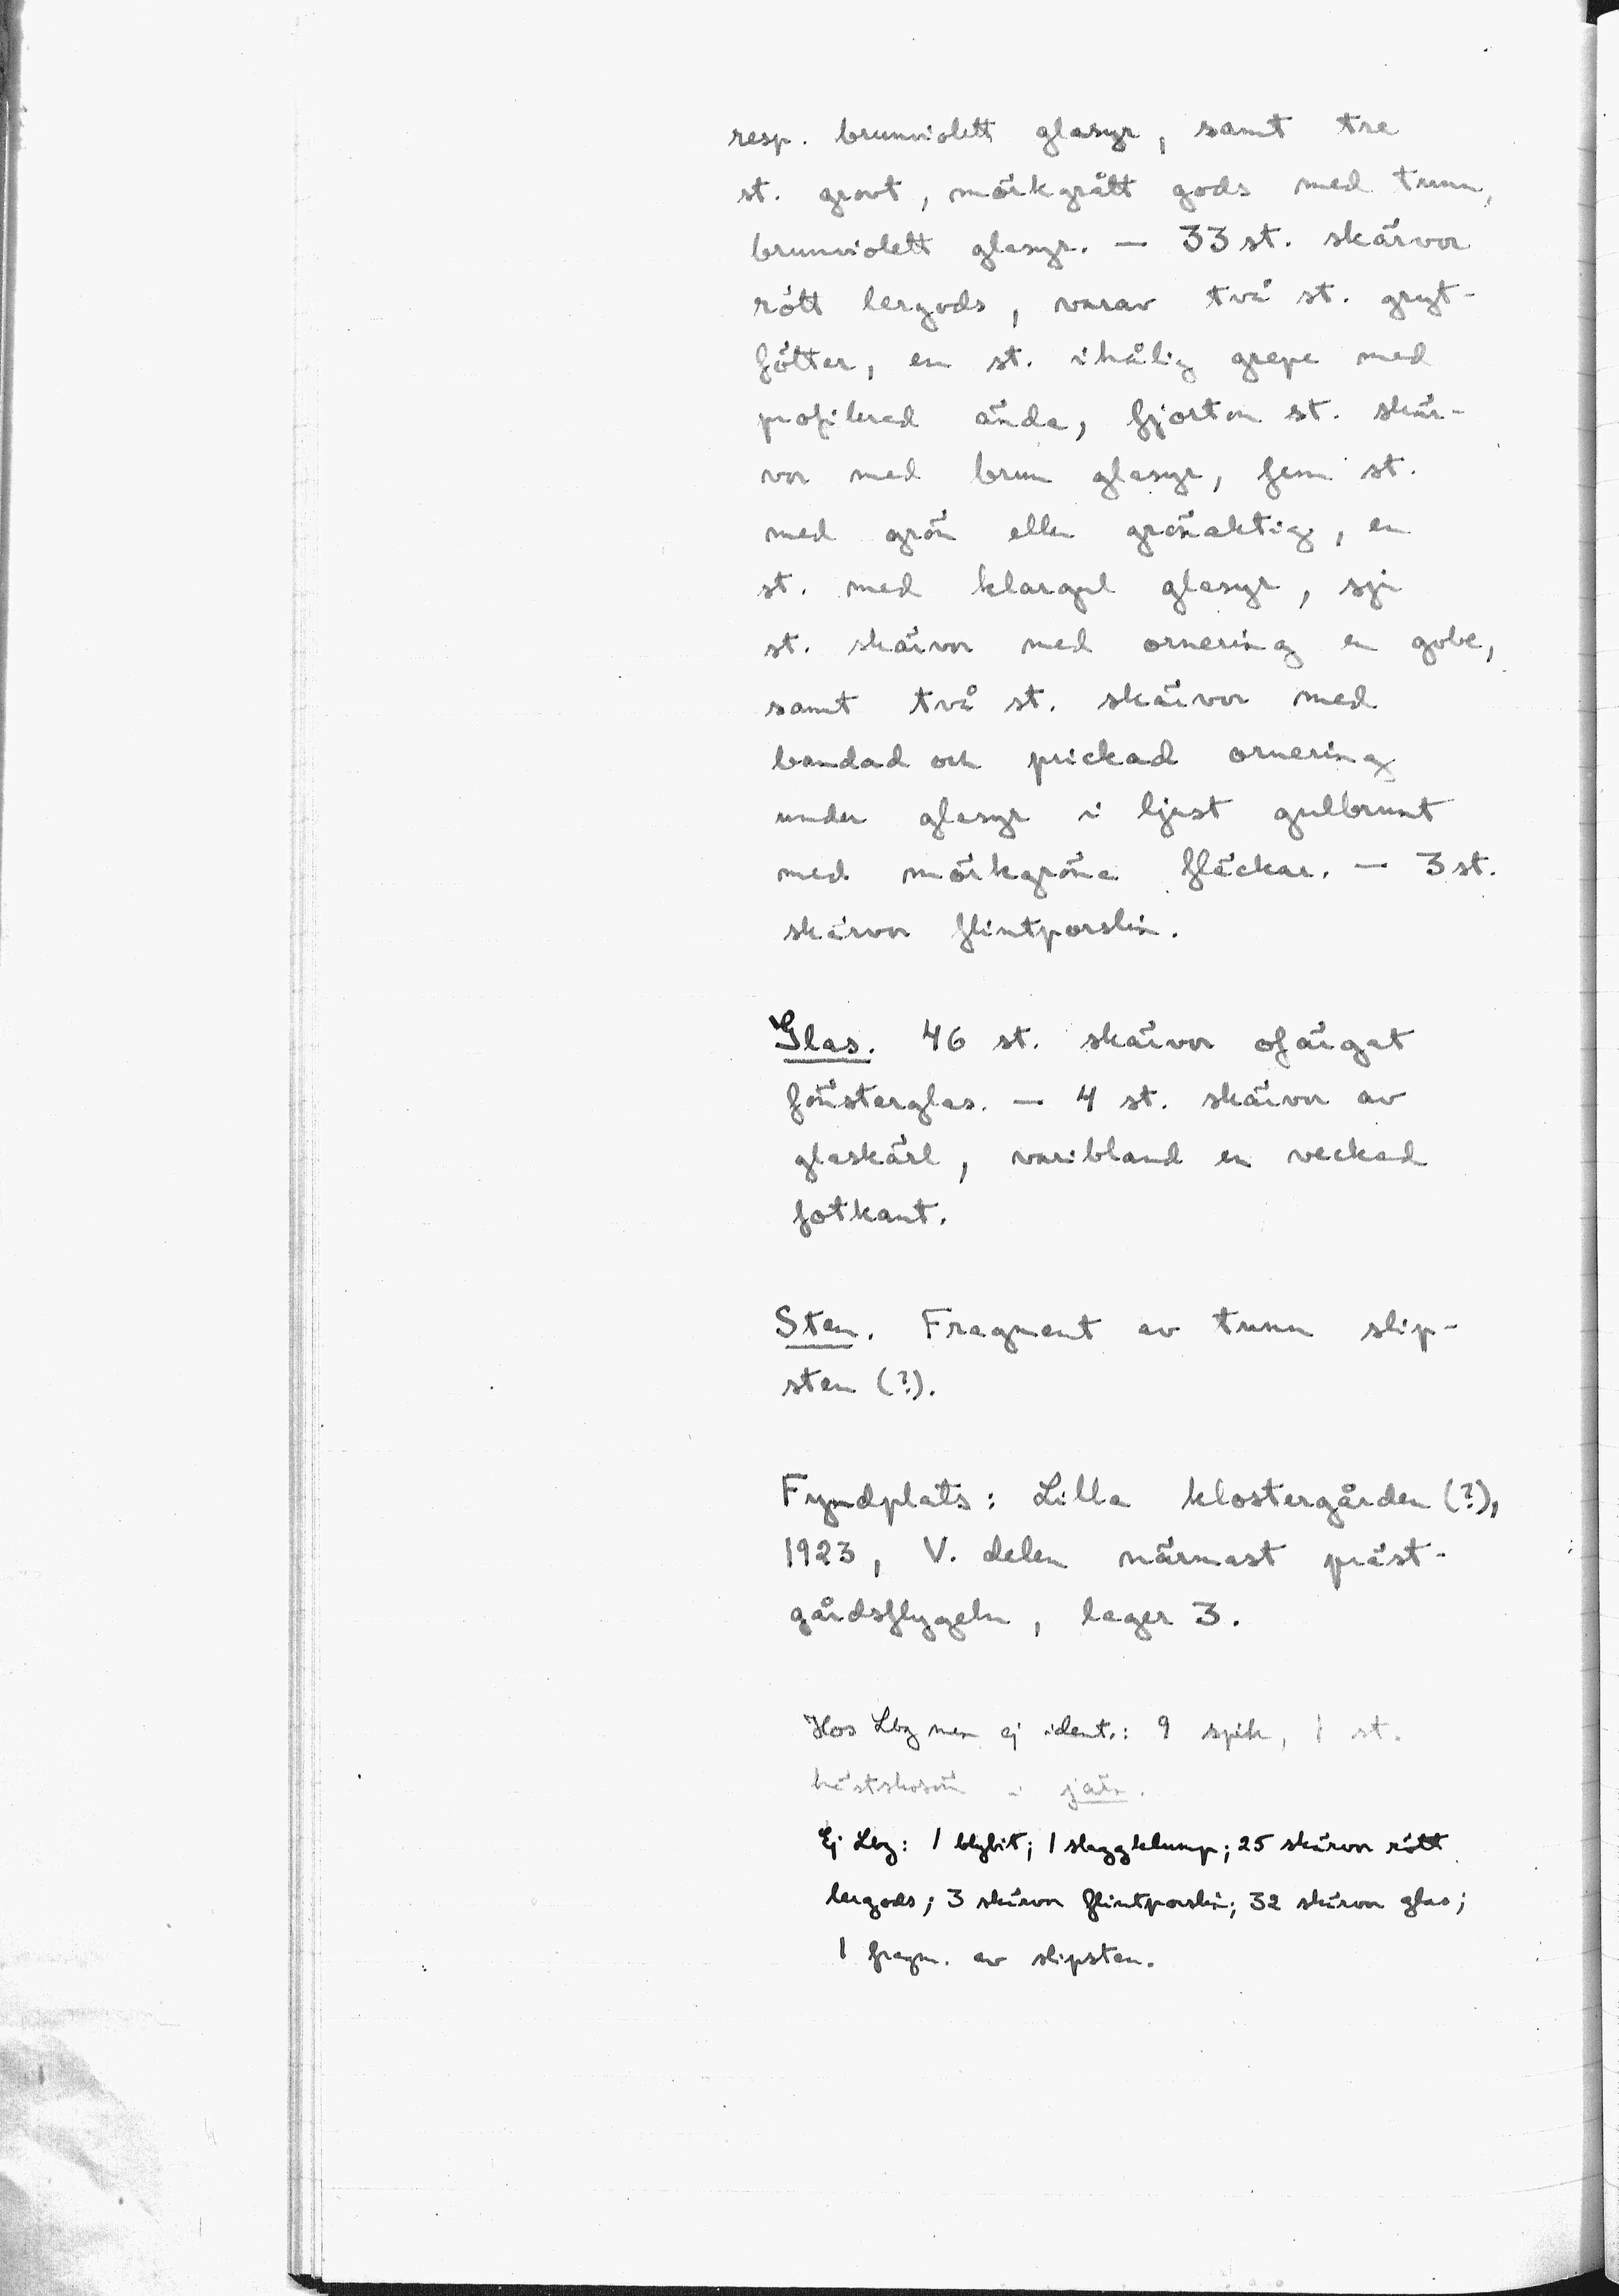 resp. brunviolett glasyr, samt tre
st. grovt, mörkgrått gods med tunn,
brunviolett glasyr. — 33 st. skärvor
rött lergods, varav två st. gryt-
fötter, en st. ihålig grepe med
profilerad ända, fjorton st. skär-
vor med brun glasyr, fem st.
med grön eller grönaktig, en
st. med klargul glasyr, sju
st. skärvor med ornering en gobe,
samt två st. skärvor med
bandad och prickad ornering
under glasyr i ljust gulbrunt
med mörkgröna fläckar. — 3 st.
skärvor flintporslin.
Glas. 46 st. skärvor ofärgat
fönsterglas. — 4 st. skärvor av
glaskärl, varibland en veckad
fotkant.
Sten. Fragment av tunn slip-
sten (?).
Fyndplats: Lilla klostergården (?),
1923, V. delen närmast präst-
gårdsflygeln, lager 3.
Hos Lbg men ej ident.: 9 spik, 1 st.
hästskosöm i järn.
Ej Lbg: 1 blybit; 1 slaggklump; 25 skärvor rött
lergods; 3 skärvor flintporslin; 32 skärvor glas;
1 fragm. av slipsten.